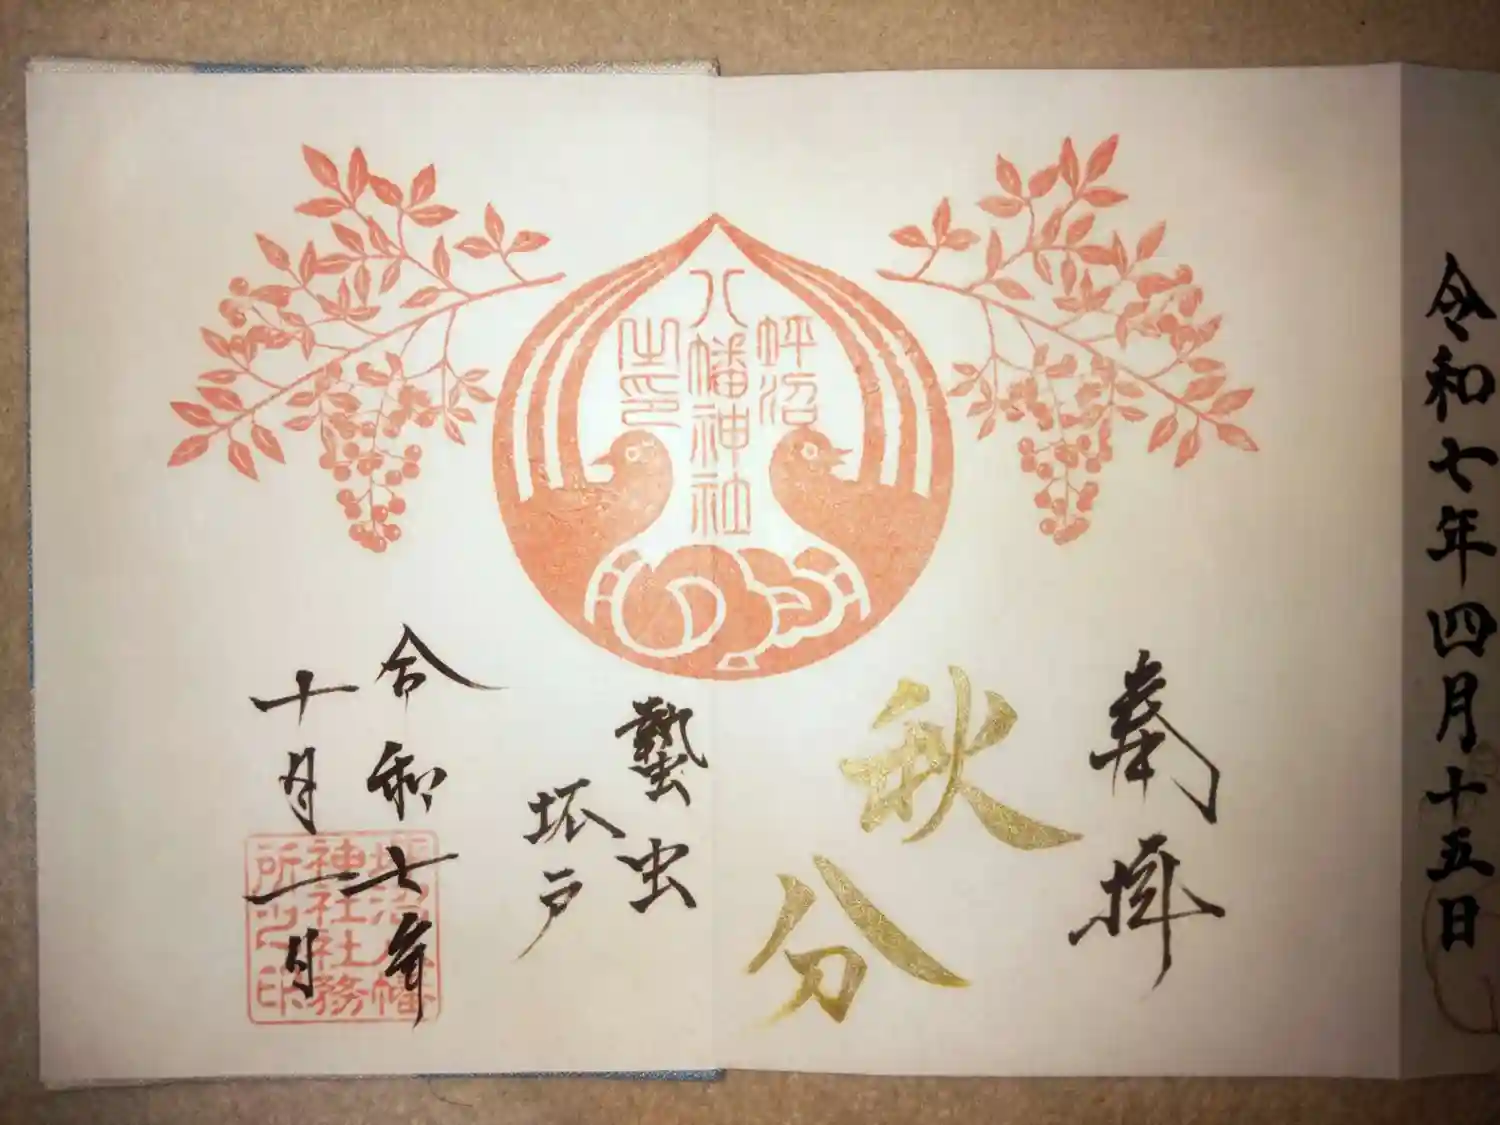 令和七年四月十五日
奉拝
秋分
坪沼
八幡神社
之印
蟄虫
坏戸
令和七年
十月一日
坪沼八幡
神社社務
所之印